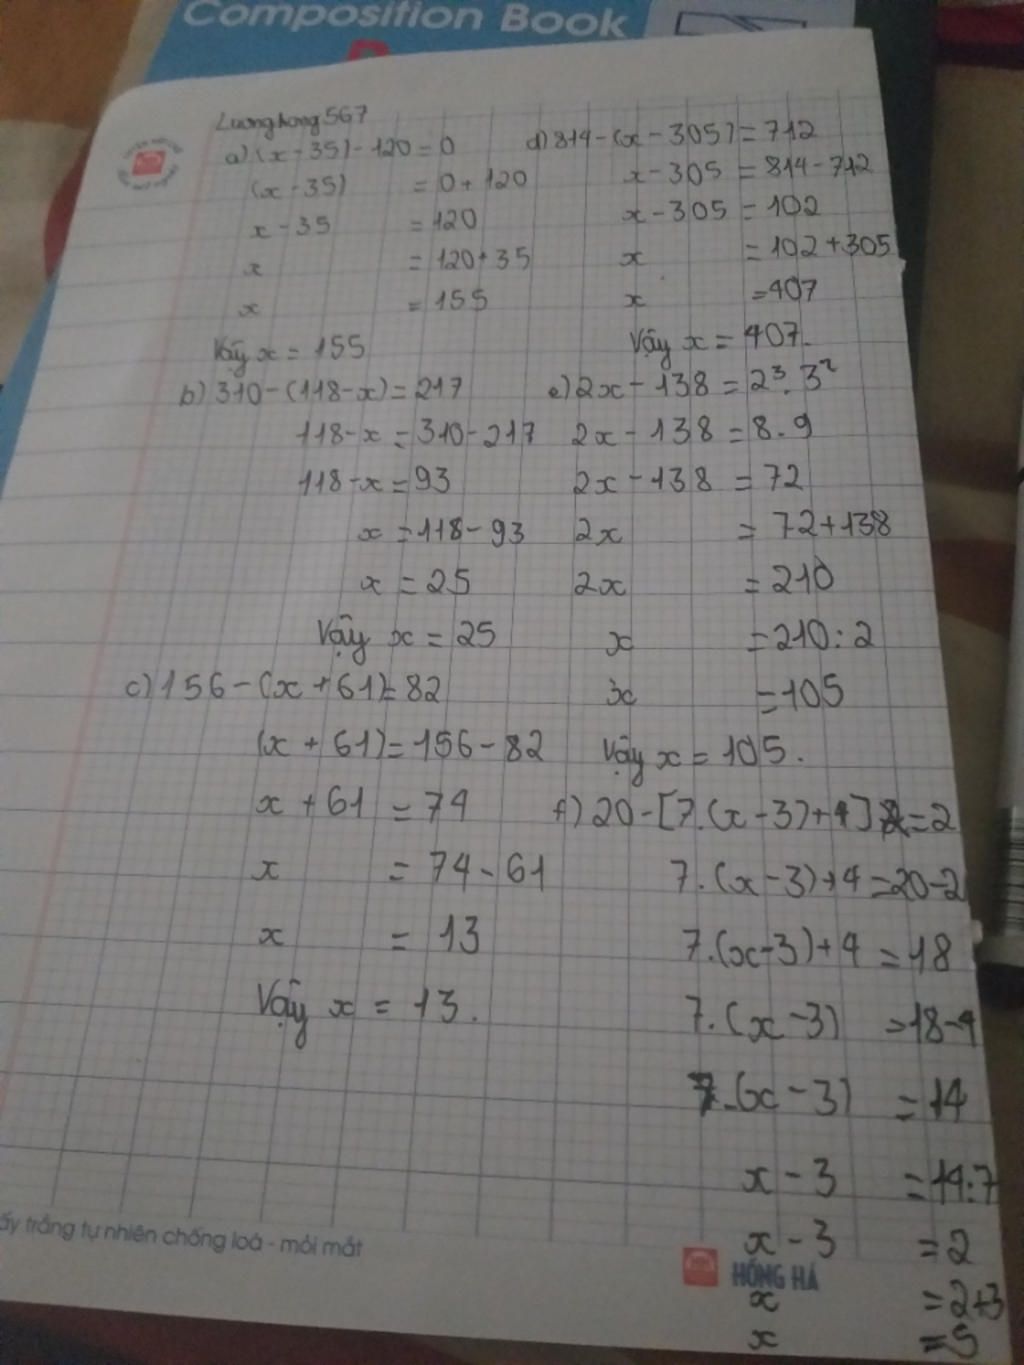 Composition Book
Luonghong567
a) (x-35)-120=0
(x-35) = 0+120
x-35 = 120
x = 120+35
x = 155
Vậy x = 155
b) 310-(118-x)=217
118-x=310-217
118-x=93
x=118-93
x=25
Vậy x=25
c) 156-(x+61)=82
(x+61)=156-82
x+61=74
x = 74-61
x = 13
Vậy x = 13.
d) 814-(x-305)=712
x-305=814-712
x-305=102
x =102+305
x =407
Vậy x=407.
e) 2x-138=2³.3²
2x-138=8.9
2x-138=72
2x = 72+138
2x =210
x =210:2
x =105
Vậy x=105.
f) 20-[7.(x-3)+4]=2
7.(x-3)+4=20-2
7.(x-3)+4=18
7.(x-3) =18-4
7.(x-3) =14
x-3 =14:7
x-3 =2
x =2+3
x =5
ấy trắng tự nhiên chống loá - mỏi mắt
HỒNG HÀ